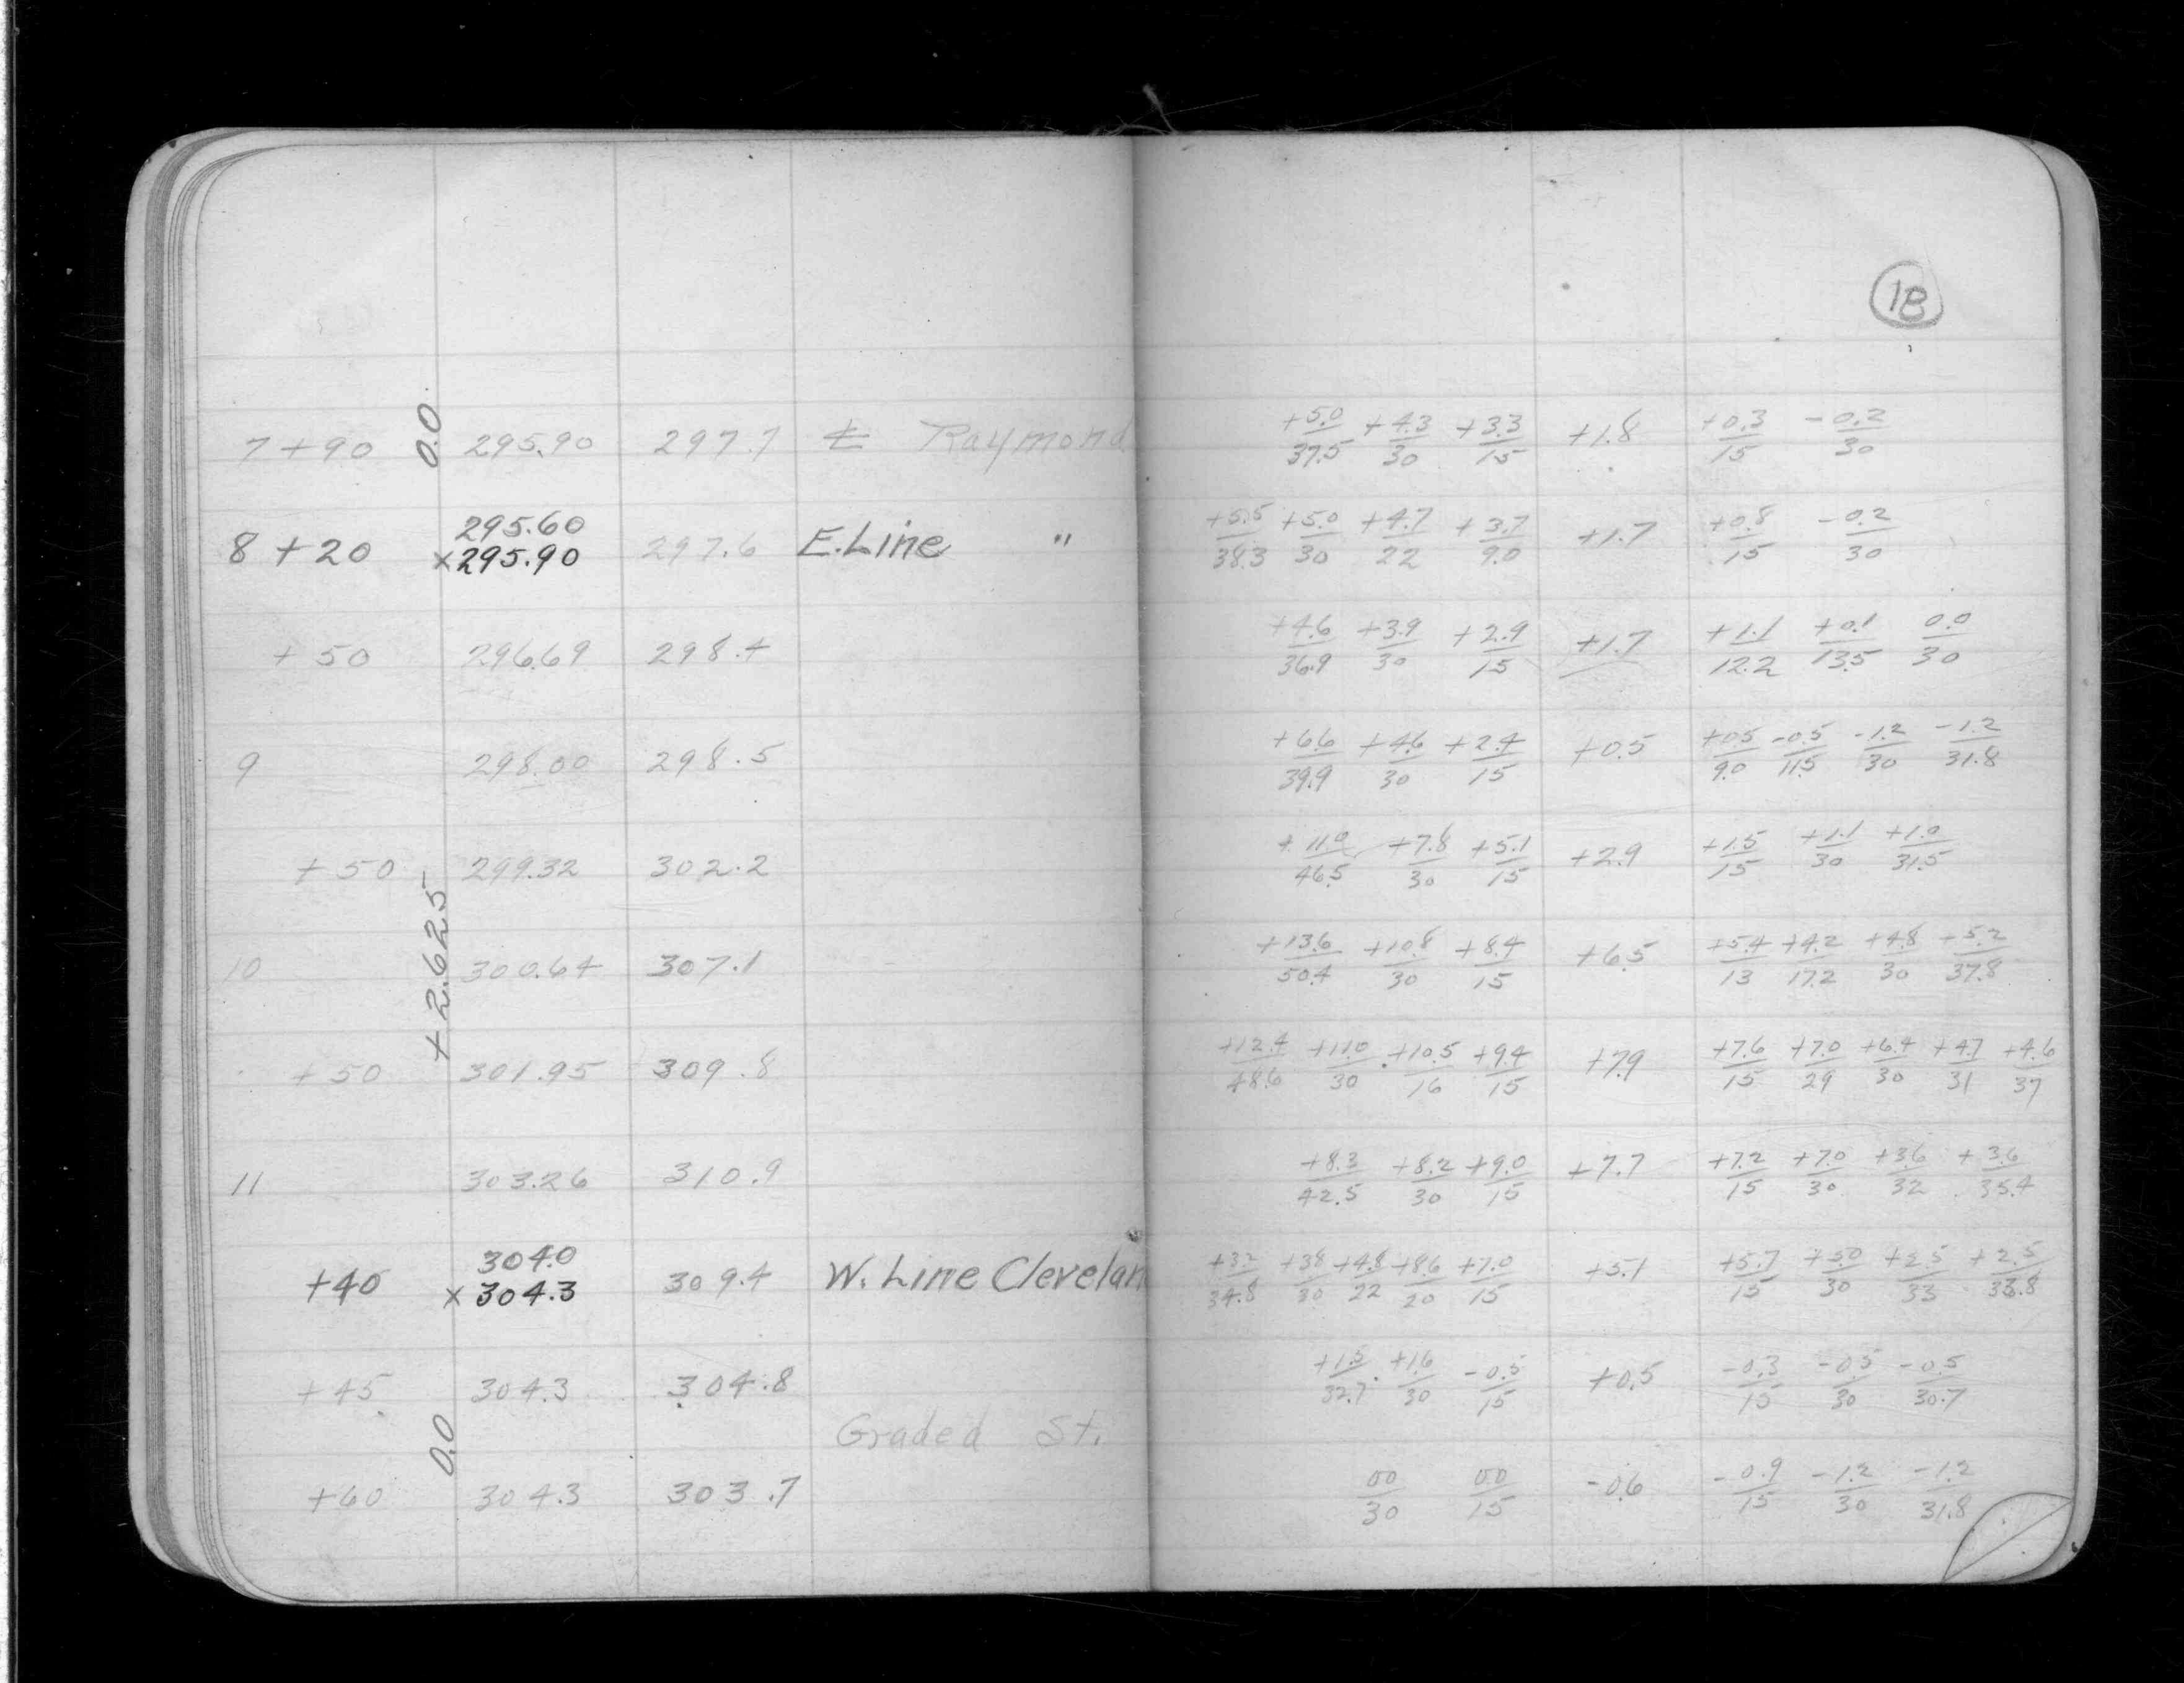 18
7+90 295.90 297.7 ℄ Raymond +5.0/37.5 +4.3/30 +3.3/15 +1.8 +0.3/15 -0.2/30
0.0
295.60
8+20 ×295.90 297.6 E.Line " +5.5/38.3 +5.0/30 +4.7/22 +3.7/9.0 +1.7 +0.8/15 -0.2/30
+50 296.69 298.4 +4.6/36.9 +3.9/30 +2.9/15 +1.7 +1.1/12.2 +0.1/13.5 0.0/30
9 298.00 298.5 +6.6/39.9 +4.6/30 +2.4/15 +0.5 +0.5/9.0 -0.5/11.5 -1.2/30 -1.2/31.8
+50 299.32 302.2 +11.0/46.5 +7.8/30 +5.1/15 +2.9 +1.5/15 +1.1/30 +1.0/31.5
+2.625
10 300.64 307.1 +13.6/50.4 +10.8/30 +8.4/15 +6.5 +5.4/13 +4.2/17.2 +4.8/30 +5.2/37.8
+50 301.95 309.8 +12.4/48.6 +11.0/30 +10.5/16 +9.4/15 +7.9 +7.6/15 +7.0/29 +6.4/30 +4.7/31 +4.6/37
11 303.26 310.9 +8.3/42.5 +8.2/30 +9.0/15 +7.7 +7.2/15 +7.0/30 +3.6/32 +3.6/35.4
304.0
+40 ×304.3 309.4 W. Line Clevelan +3.2/34.8 +3.8/30 +4.8/22 +8.6/20 +7.0/15 +5.1 +5.7/15 +5.0/30 +2.5/33 +2.5/33.8
+45 304.3 304.8 +1.5/32.7 +1.6/30 -0.5/15 +0.5 -0.3/15 -0.5/30 -0.5/30.7
Graded St.
0.0
+60 304.3 303.7 00/30 00/15 -0.6 -0.9/15 -1.2/30 -1.2/31.8